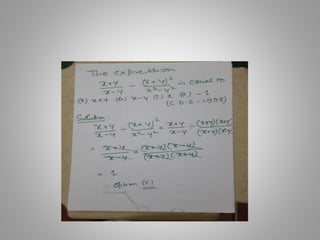 The expression
x+y/x-y ÷ (x+y)²/x²-y² is equal to
(a) x+y (b) x-y (c) 1 (d) -1
(C.D.S-1998)
Solution
x+y/x-y ÷ (x+y)²/x²-y² = x+y/x-y ÷ (x+y)(x+y)/(x+y)(x-y)
= x+y/x-y × (x+y)(x-y)/(x+y)(x+y)
= 1
Option (c)